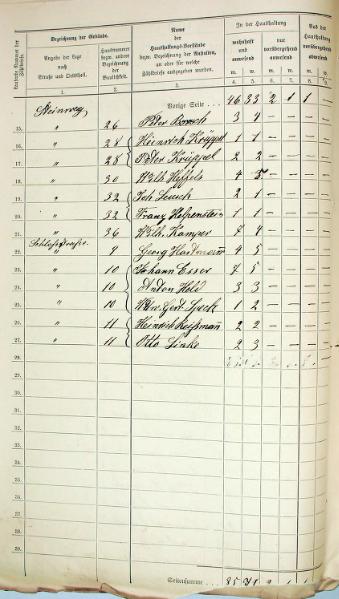 Bezeichnung der Gebäude.
Angabe der Lage nach Straße und Ortsteil.
Hausnummer bezw. andere Bezeichnung der Baulichkeit.
Name der Haushaltungs-Vorstände bezw. Bezeichnung der Anstalten, an oder für welche Zählbriefe ausgegeben wurden.
In der Haushaltung
wohnhaft und anwesend
nur vorübergehend anwesend
Aus der Haushaltung vorübergehend abwesend
m. w. m. w. m. w.
1. 2. 3. 4. 5. 6. 7. 8. 9.
Steinweg, Vorige Seite 46 33 2 1 1 —
15. " 26 Peter 3 4 — — — —
16. " 28 Heinrich Krüppel 1 1 — — — —
17. " 28 Peter Krüppel 2 2 — — — —
18. " 30 Wilh. Heffels 4 — — — —
19. " 32 Joh. 2 1 — — — —
20. " 32 Franz 1 1 — — — —
21. " 36 Wilh. Kamper 7 4 — — — —
22. 9 Georg Hartmann 4 5 — — — —
23. " 10 Johann Esser 7 5 — — — —
24. " 10 Anton Held 3 3 — — — —
25. " 10 Wtw. Gert. Speck 1 2 — — — —
26. " 11 Heinrich 2 2 — — — —
27. " 11 Otto Linke 2 3 — — — —
28.
29.
30.
31.
32.
33.
34.
35.
36.
37.
38.
39.
Seitensumme 85